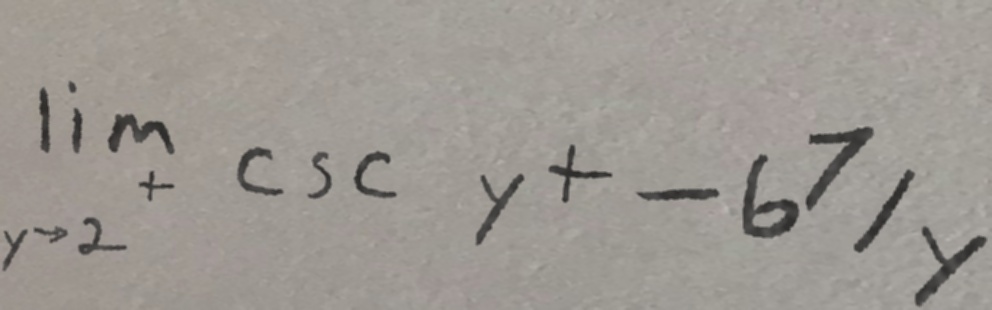 lim_{y→2^+} csc y + -6^7/y